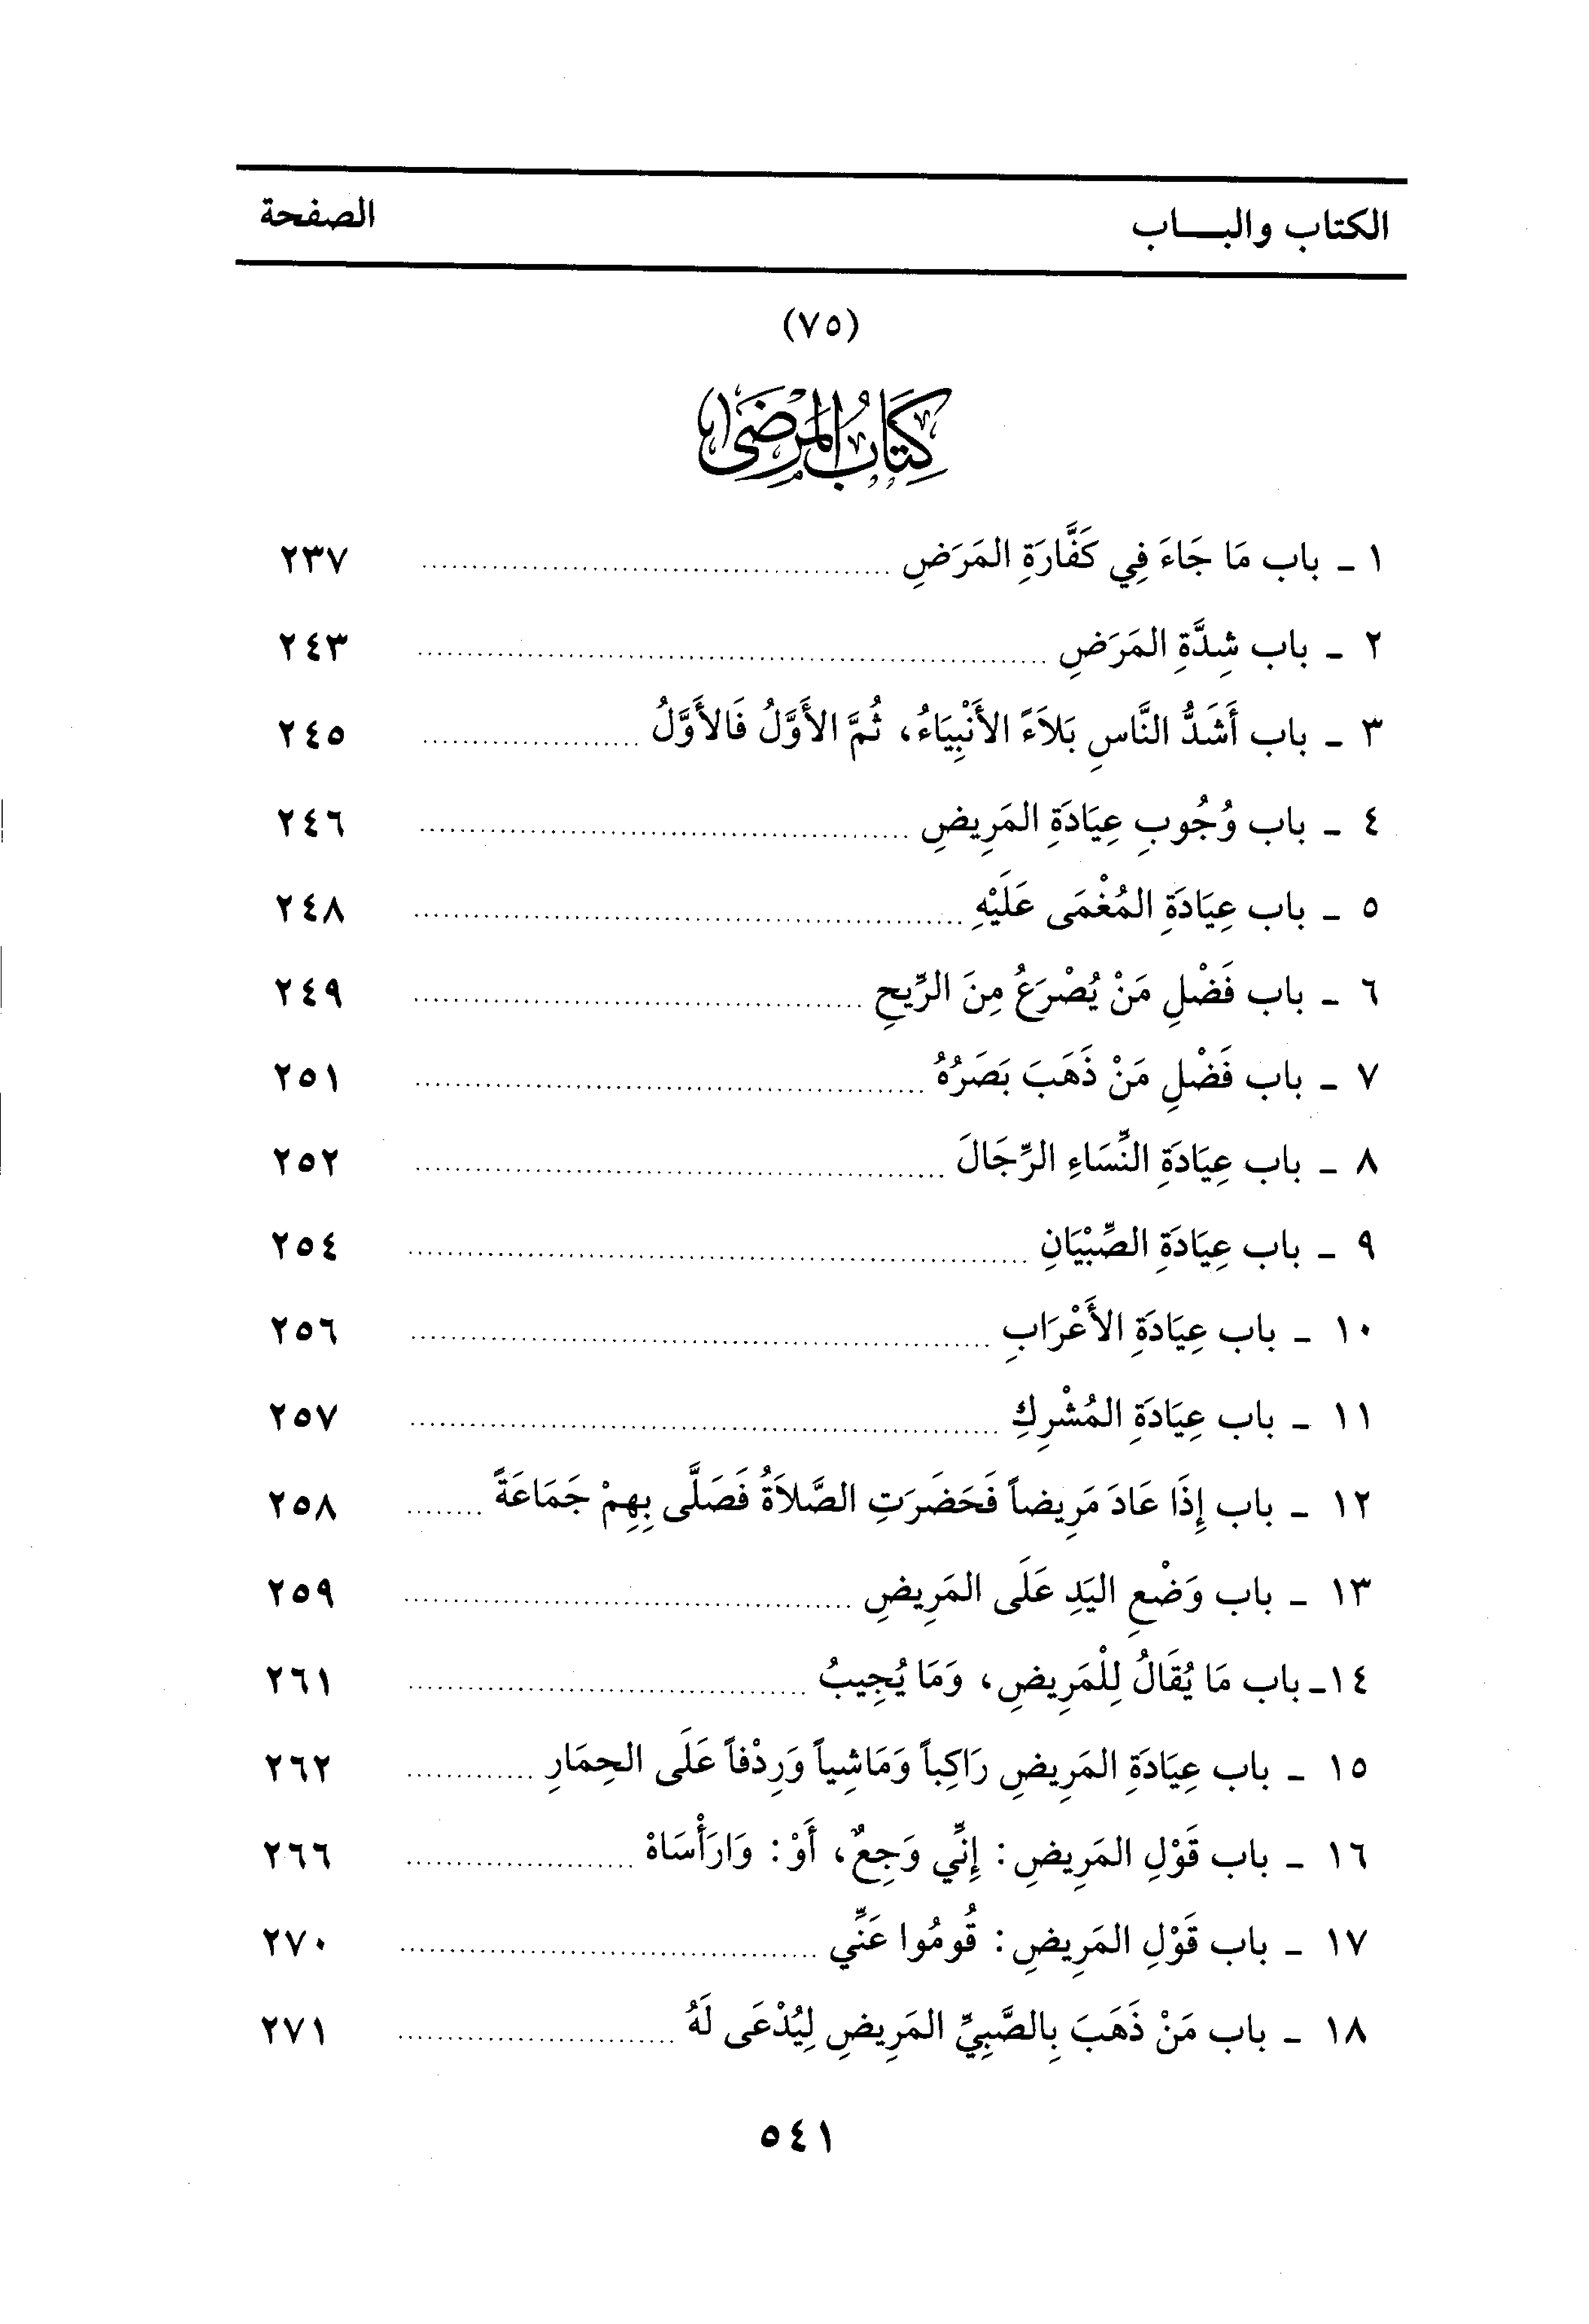 الكتاب والبـــاب الصفحة
(٧٥)
كِتَابُ المَرْضَى
١ - باب مَا جَاءَ فِي كَفَّارَةِ المَرَضِ ........ ٢٣٧
٢ - باب شِدَّةِ المَرَضِ ........ ٢٤٣
٣ - باب أَشَدُّ النَّاسِ بَلاَءً الأَنْبِيَاءُ، ثُمَّ الأَوَّلُ فَالأَوَّلُ ........ ٢٤٥
٤ - باب وُجُوبِ عِيَادَةِ المَرِيضِ ........ ٢٤٦
٥ - باب عِيَادَةِ المُغْمَى عَلَيْهِ ........ ٢٤٨
٦ - باب فَضْلِ مَنْ يُصْرَعُ مِنَ الرِّيحِ ........ ٢٤٩
٧ - باب فَضْلِ مَنْ ذَهَبَ بَصَرُهُ ........ ٢٥١
٨ - باب عِيَادَةِ النِّسَاءِ الرِّجَالَ ........ ٢٥٢
٩ - باب عِيَادَةِ الصِّبْيَانِ ........ ٢٥٤
١٠ - باب عِيَادَةِ الأَعْرَابِ ........ ٢٥٦
١١ - باب عِيَادَةِ المُشْرِكِ ........ ٢٥٧
١٢ - باب إِذَا عَادَ مَرِيضاً فَحَضَرَتِ الصَّلاَةُ فَصَلَّى بِهِمْ جَمَاعَةً ........ ٢٥٨
١٣ - باب وَضْعِ اليَدِ عَلَى المَرِيضِ ........ ٢٥٩
١٤- باب مَا يُقَالُ لِلْمَرِيضِ، وَمَا يُجِيبُ ........ ٢٦١
١٥ - باب عِيَادَةِ المَرِيضِ رَاكِباً وَمَاشِياً وَرِدْفاً عَلَى الحِمَارِ ........ ٢٦٢
١٦ - باب قَوْلِ المَرِيضِ: إِنِّي وَجِعٌ، أَوْ: وَارَأْسَاهْ ........ ٢٦٦
١٧ - باب قَوْلِ المَرِيضِ: قُومُوا عَنِّي ........ ٢٧٠
١٨ - باب مَنْ ذَهَبَ بِالصَّبِيِّ المَرِيضِ لِيُدْعَى لَهُ ........ ٢٧١
٥٤١